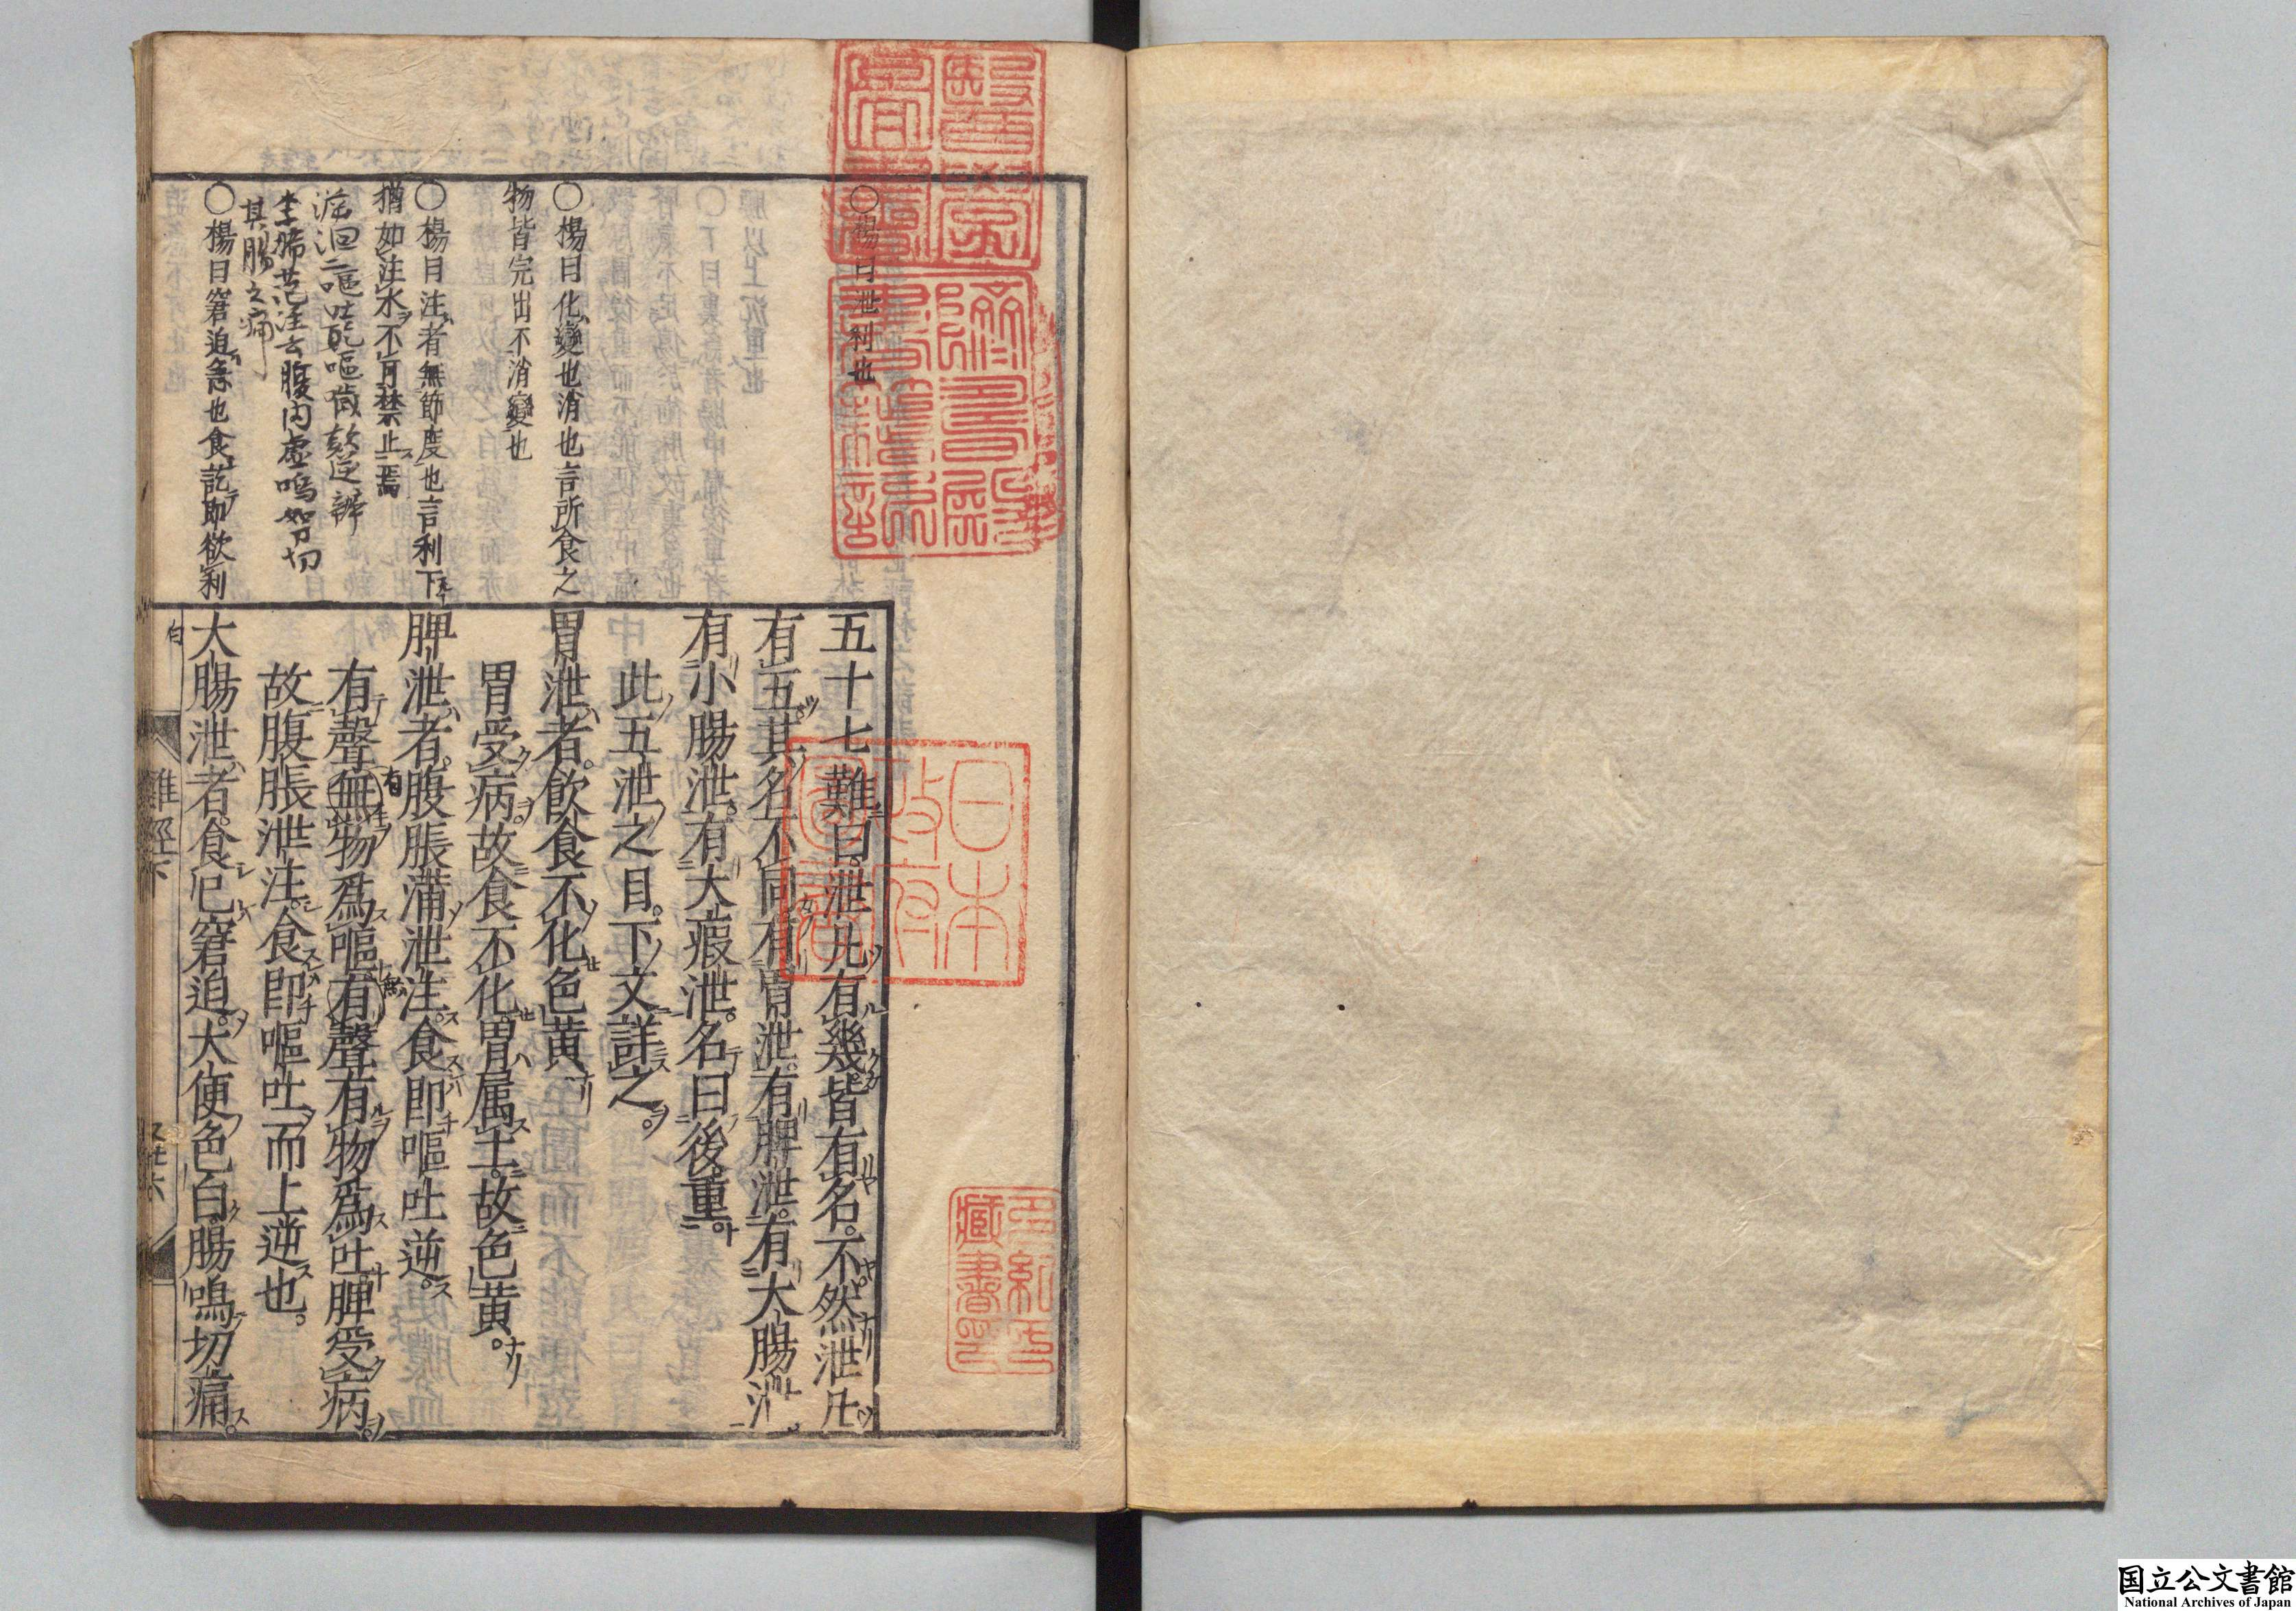 五十七難曰泄凡有幾皆有名不然泄凡
有五其名不同有胃泄有脾泄有大腸泄
有小腸泄有大瘕泄名曰後重
此五泄之目下文詳之
胃泄者飲食不化色黄
胃受病故食不化胃属土故色黄
脾泄者腹脹満泄注食即嘔吐逆
有聲無物爲嘔有聲有物爲吐脾受病
故腹脹泄注食即嘔吐而上逆也
大腸泄者食已窘迫大便色白腸鳴切痛
○楊曰泄利也
○楊曰化變也消也言所食之
物皆完出不消變也
○楊曰注者無節度也言利下
猶如注水不可禁止焉
其腸之痛
○楊曰窘迫急也食訖即欲利
難經下
日本
政府
圖書
醫學
圖書
多紀氏
藏書印
国立公文書館
National Archives of Japan